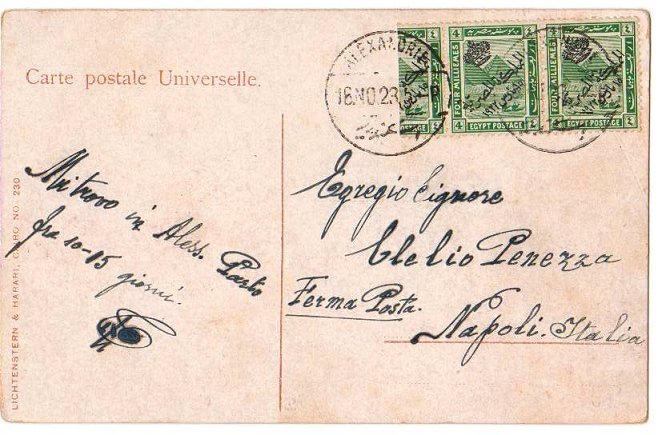 Carte postale Universelle.
ALEXANDRIE
16.NO.23
4 4
FOUR MILLIEMES
EGYPT POSTAGE
4 4
FOUR MILLIEMES
EGYPT POSTAGE
EGYPT POSTAGE
المملكة المصرية
Mi trovo in Aless. Parto
fra 10-15 giorni.
Egregio Signore
Clelio Penezza
Ferma Posta.
Napoli. Italia
LICHTENSTERN & HARARI, CAIRO NO. 230